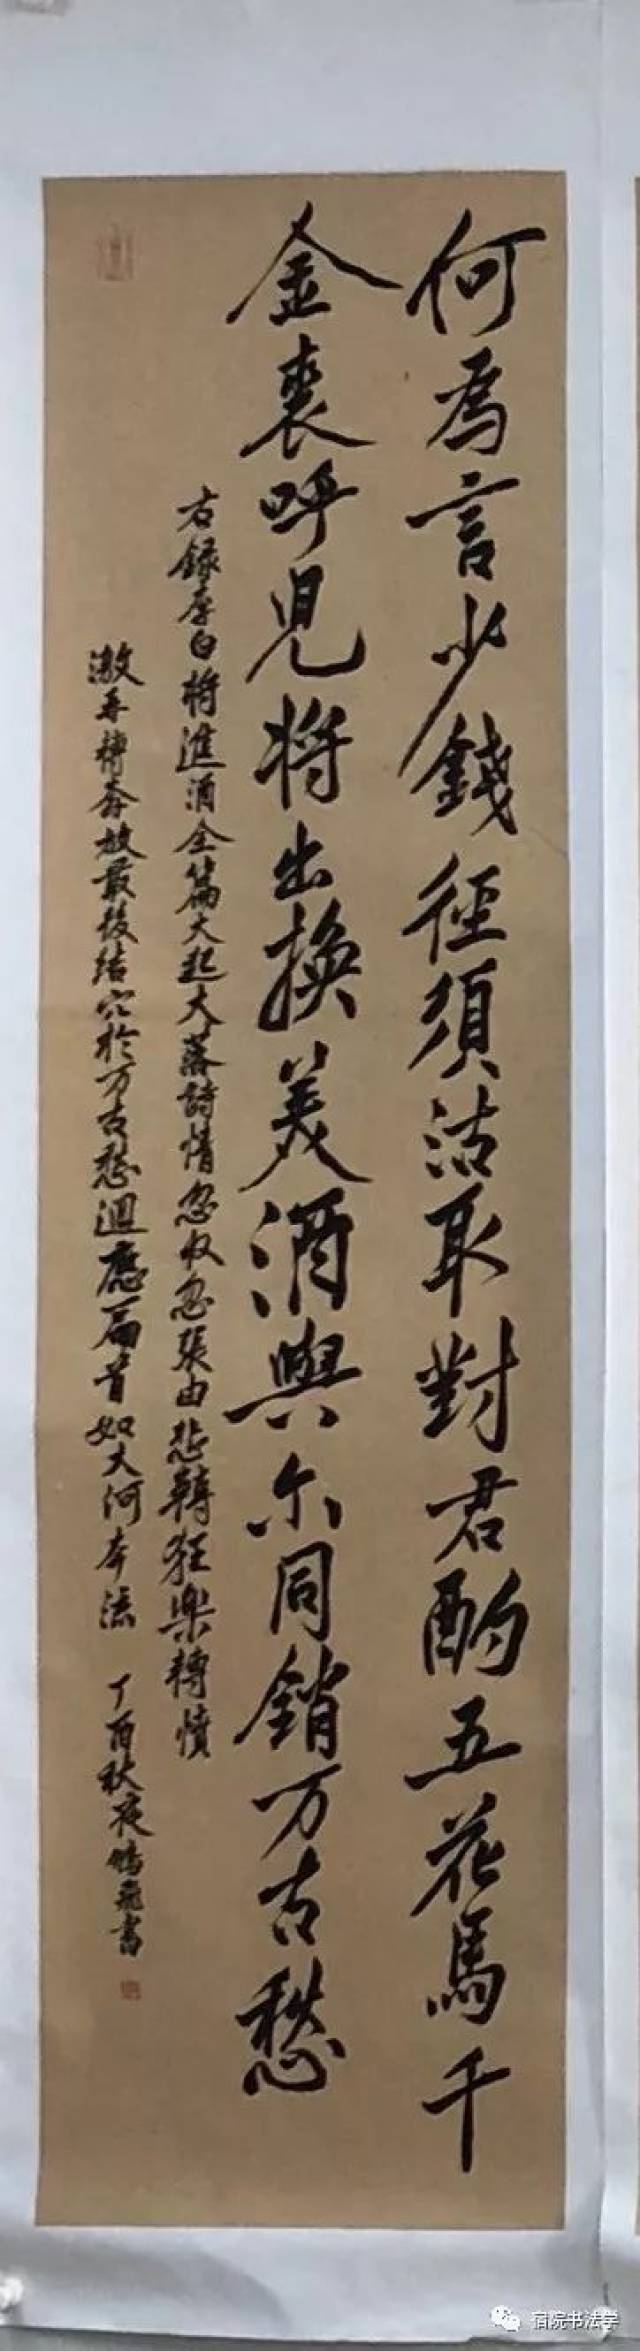 何為言少錢徑須沽取對君酌五花馬千
金裘呼兒將出換美酒與尔同銷万古愁
右録李白將進酒全篇大起大落詩情忽收忽張由悲轉狂樂轉憤
激再轉奔放最後結穴於万古愁迴應篇首如大河奔流 丁酉秋夜鵬飛書
宿院书法学